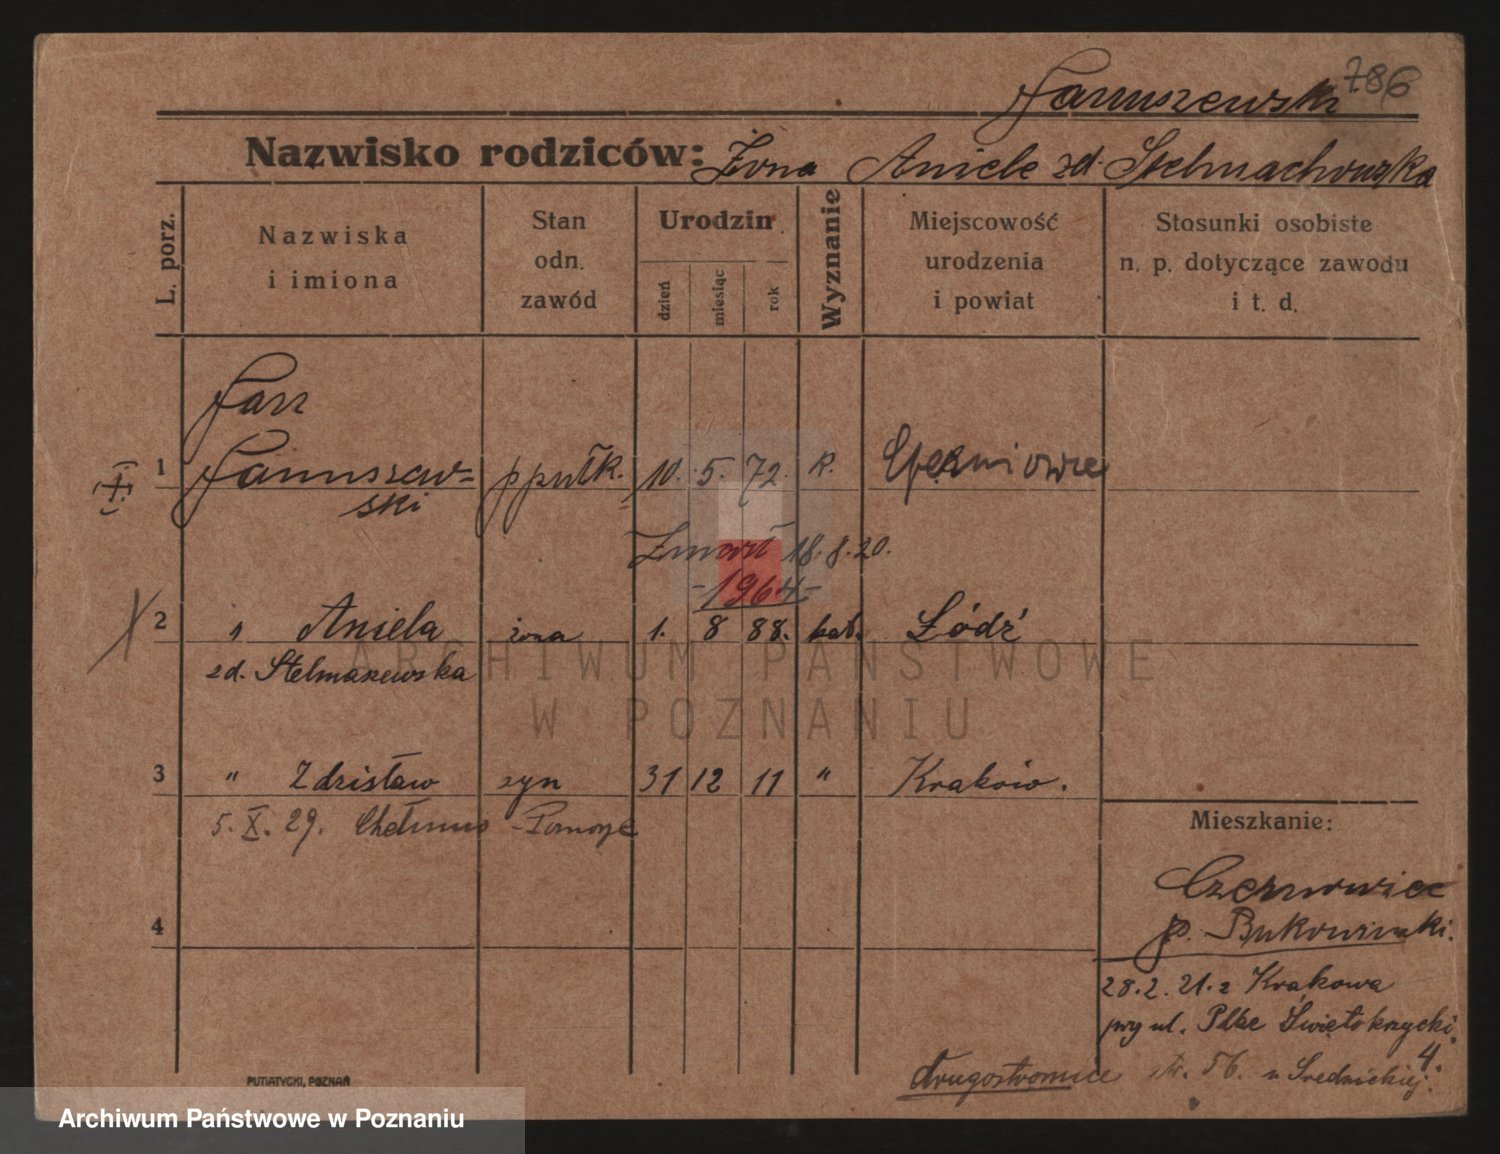 786
Januszewski
Nazwisko rodziców: Żona Aniele zd. Stelmachowska
L. porz.
Nazwiska
i imiona
Stan
odn.
zawód
Urodzin
dzień
miesiąc
rok
Wyznanie
Miejscowość
urodzenia
i powiat
Stosunki osobiste
n. p. dotyczące zawodu
i t. d.
Jan
1 Januszew= ppułk. 10. 5. 72. k.
ski
Zmarł 18.8.20.
-1964-
2 " Aniela żona 1. 8 88. kat. Łódź
zd. Stelmaszewska
ARCHIWUM PAŃSTWOWE
W POZNANIU
3 " Zdzisław syn 31 12 11 " Kraków.
5. X. 29. Chełmno - Pomorze
Mieszkanie:
Czernowice
p. Bukowinski.
4
28.2.21. z Krakowa
przy ul. Plac Świętokrzycki
4.
drugostronnie str. 56. u Srednickiej.
PUTIATYCKI, POZNAŃ
Archiwum Państwowe w Poznaniu